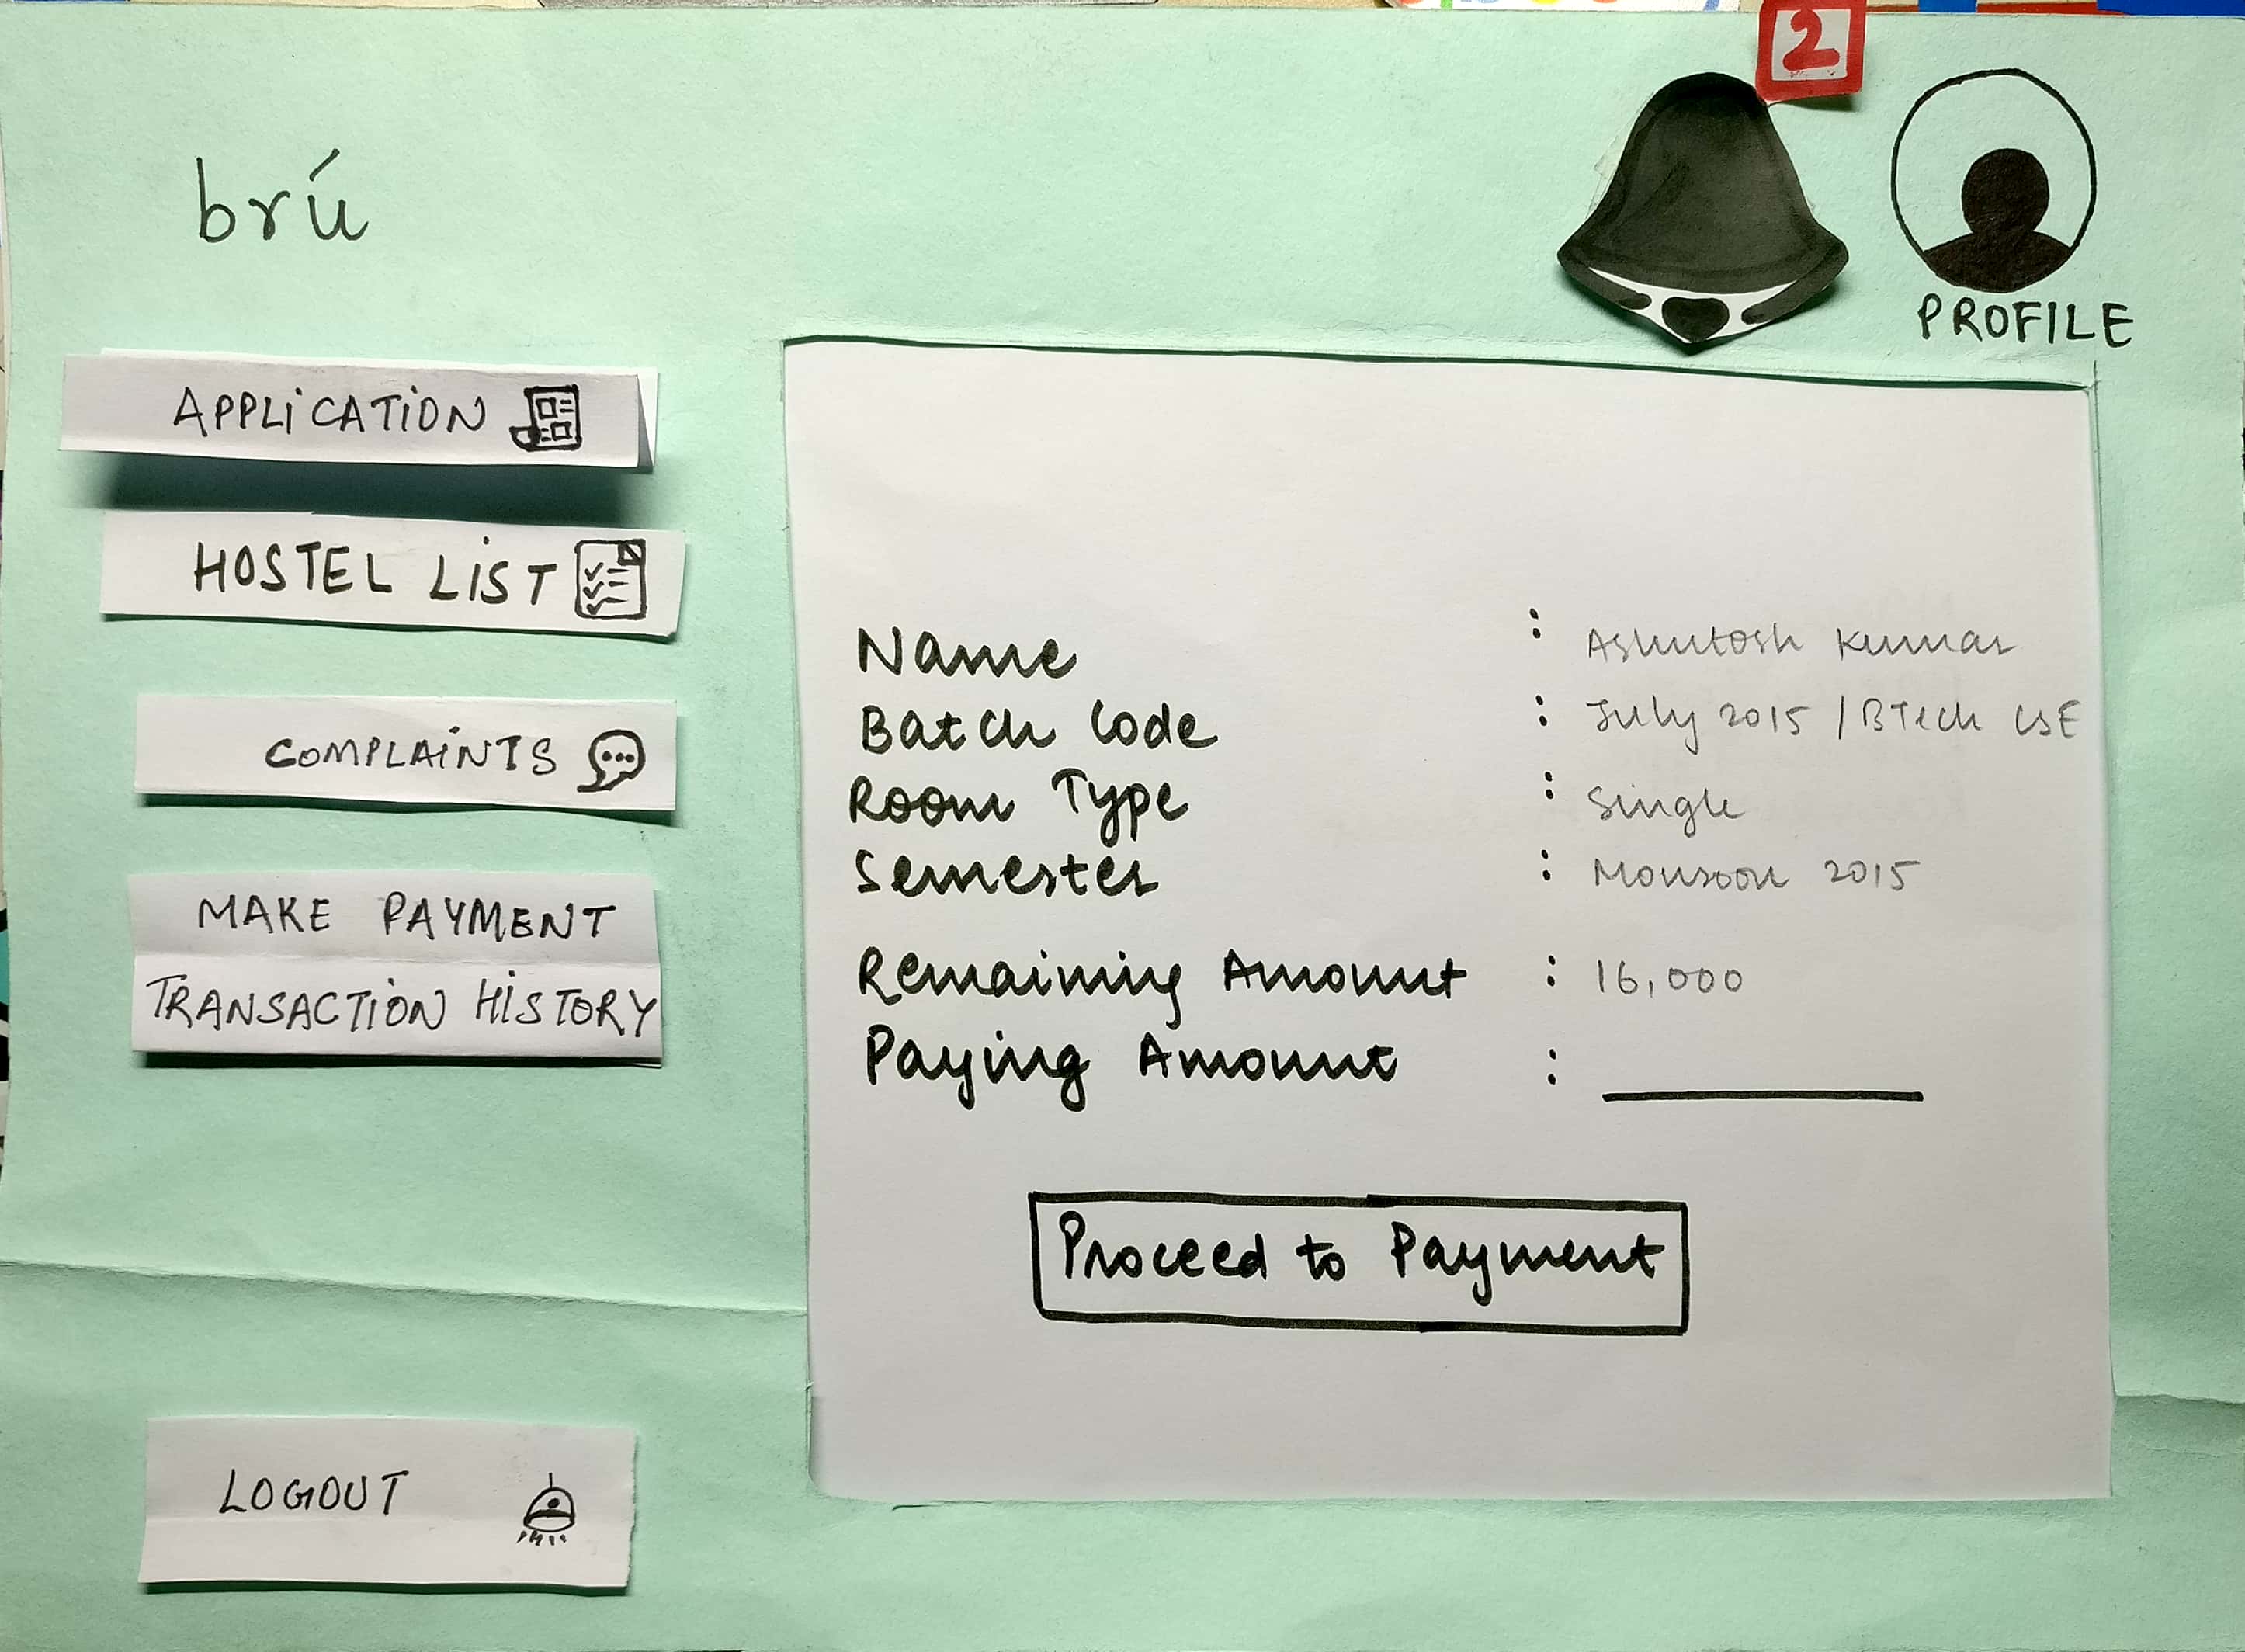 2
brú
PROFILE
APPLiCATiON
HOSTEL LiST
COMPLAiNTS
MAKE PAYMENT
TRANSACTiON HiSTORY
LOGOUT
Name : Ashutosh Kumar
Batch Code : July 2015 / BTech CSE
Room Type : Single
Semester : Monsoon 2015
Remaining Amount : 16,000
Paying Amount :
Proceed to Payment